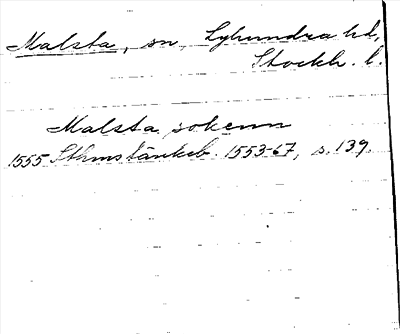 Malsta, sn, Lyhundra hd,
Stockh. l.
Malsta sokenn
1555 Sthms tänkeb. 1553-67, s. 139.